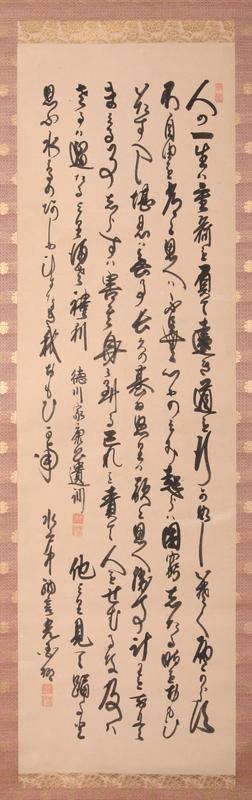 人の一生ハ重荷を負て遠き道を行か如し急くへからす
不自由を常と思へハ不足なし心に望み起らハ困窮したる時を思ひ
いたすへし堪忍ハ無事長久の基怒ハ敵と思へ勝事計を知て
まくる事しらされハ害其身に至る己れを責て人をせむるな及ハ
さるハ過たるより 徳川家康公遺訓
水鳥のあしにひまなき我おもひ 水戸 光圀卿